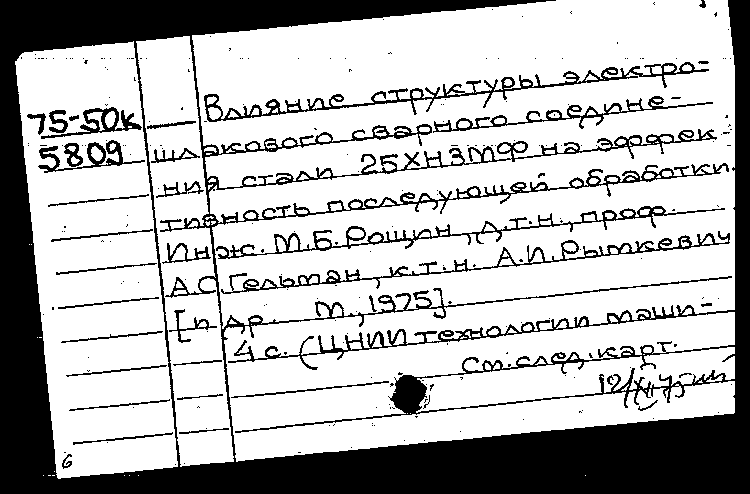 75-50к
5809
Влияние структуры электро-
шлакового сварного соедине-
ния стали 25ХН3МФ на эффек-
тивность последующей обработки.
Инж. М.Б.Рощин, д.т.н., проф.
А.С.Гельман, к.т.н. А.И.Рымкевич
[и др. М., 1975].
4 с. (ЦНИИ технологии маши-
См. след. карт.
6